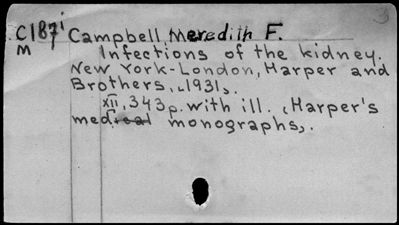 C187i Campbell, Meredith F.
M
Infections of the kidney.
New York-London, Harper and
Brothers, [1931].
XII, 343p. with ill. (Harper's
medical monographs).